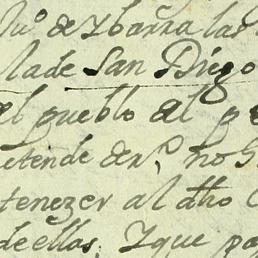 Juº de Ybarra las
la de San Diego
el pueblo del p
etende der.º no
tenezer al dho
de ellas; Y que pa